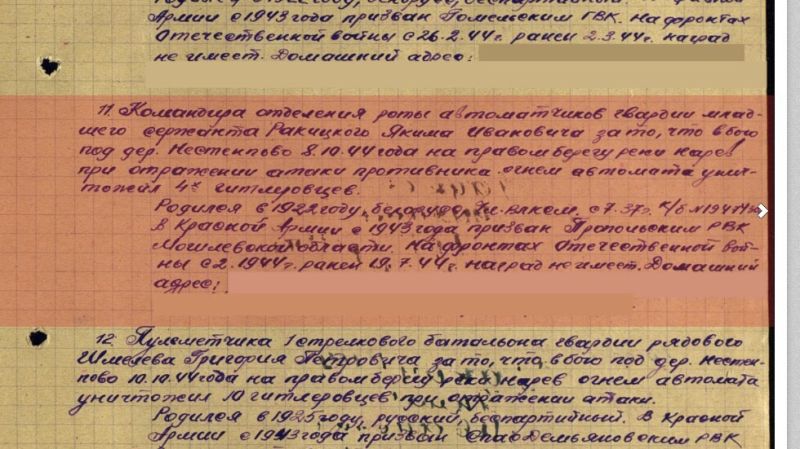 Армии с 1943 года призван Гомельским ГВК. На фронтах
Отечественной войны с 26.2.44 г. ранен 2.3.44 г. наград
не имеет. Домашний адрес:
11. Командира отделения роты автоматчиков гвардии млад-
шего сержанта Ракицкого Якима Ивановича за то, что в бою
под дер. Нестемпово 8.10.44 года на правом берегу реки Нарев
при отражении атаки противника огнем автомата унич-
тожил 4х гитлеровцев.
Родился в 1922 году, белорус, Чл. ВЛКСМ. с 7.37г. к/б №
В Красной Армии с 1943 года призван Пропойским РВК
Могилевской области. На фронтах Отечественной вой-
ны с 2.1944 г. ранен 19.7.44 г. наград не имеет. Домашний
адрес:
12. Пулеметчика 1 стрелкового батальона гвардии рядового
Шмелева Григория Петровича за то, что в бою под дер. Нестем-
пово 10.10.44 года на правом берегу реки Нарев огнем автомата
уничтожил 10 гитлеровцев при отражении атаки.
Родился в 1925 году, русский, беспартийный. В Красной
Армии с 1943 года призван Спас-Демьяновским РВК